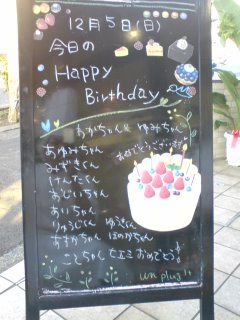 12月5日(日)
今日の
Happy
Birthday
わかいちゃん ゆみちゃん
おめでとうございます
あゆみちゃん
みずきくん
けんたくん
おじいちゃん
あいちゃん
りゅうじくん ゆうきくん
あすかちゃん ほのかちゃん
ことちゃん おめでとう!
un plug!!